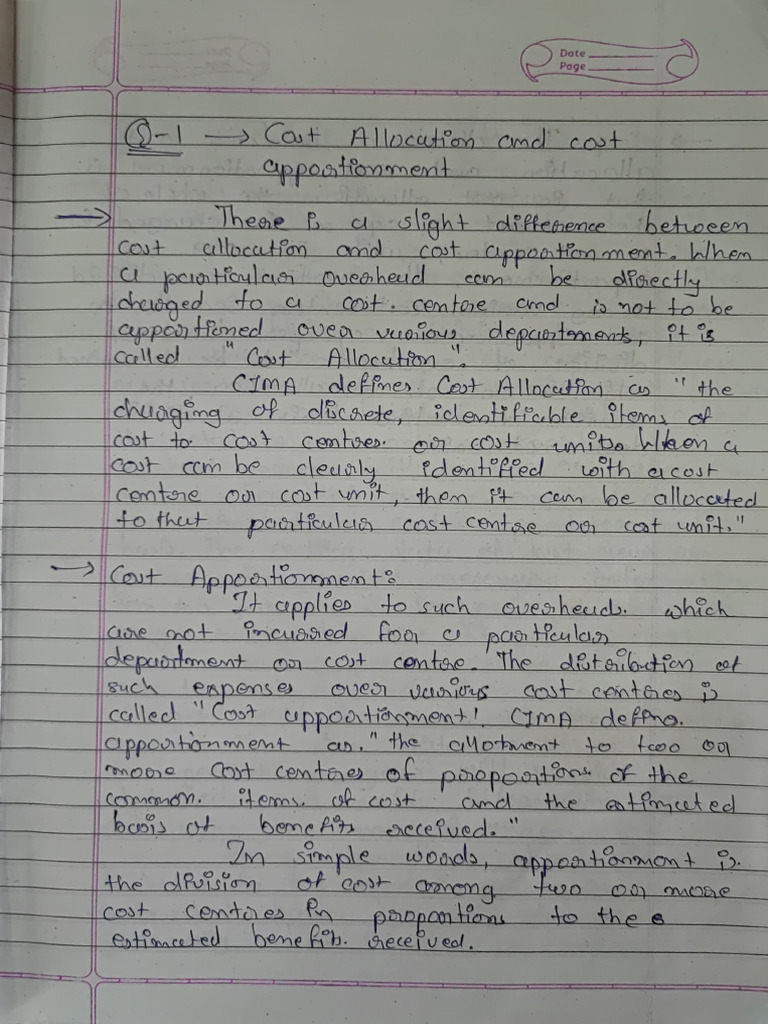 Date
Page
Q-1 → Cost Allocation and cost
apportionment
→ There is a slight difference between
cost allocation and cost apportionment. When
a particular overhead can be directly
charged to a cost. centre and is not to be
apportioned over various departments, it is
called "Cost Allocation".
CIMA defines Cost Allocation as "the
charging of discrete, identifiable items of
cost to cost centres. or cost units. When a
cost can be clearly identified with a cost
centre or cost unit, then it can be allocated
to that particular cost centre or cost unit."
→ Cost Apportionment:
It applies to such overheads. which
are not incurred for a particular
department or cost centre. The distribution of
such expenses over various cost centres is
called "Cost apportionment'. CIMA define.
apportionment as. "the allotment to two or
more cost centres of proportions of the
common. items. of cost and the estimated
basis of benefits received."
In simple words, apportionment is.
the division of cost among two or more
cost centres in proportions to the
estimated benefits. received.